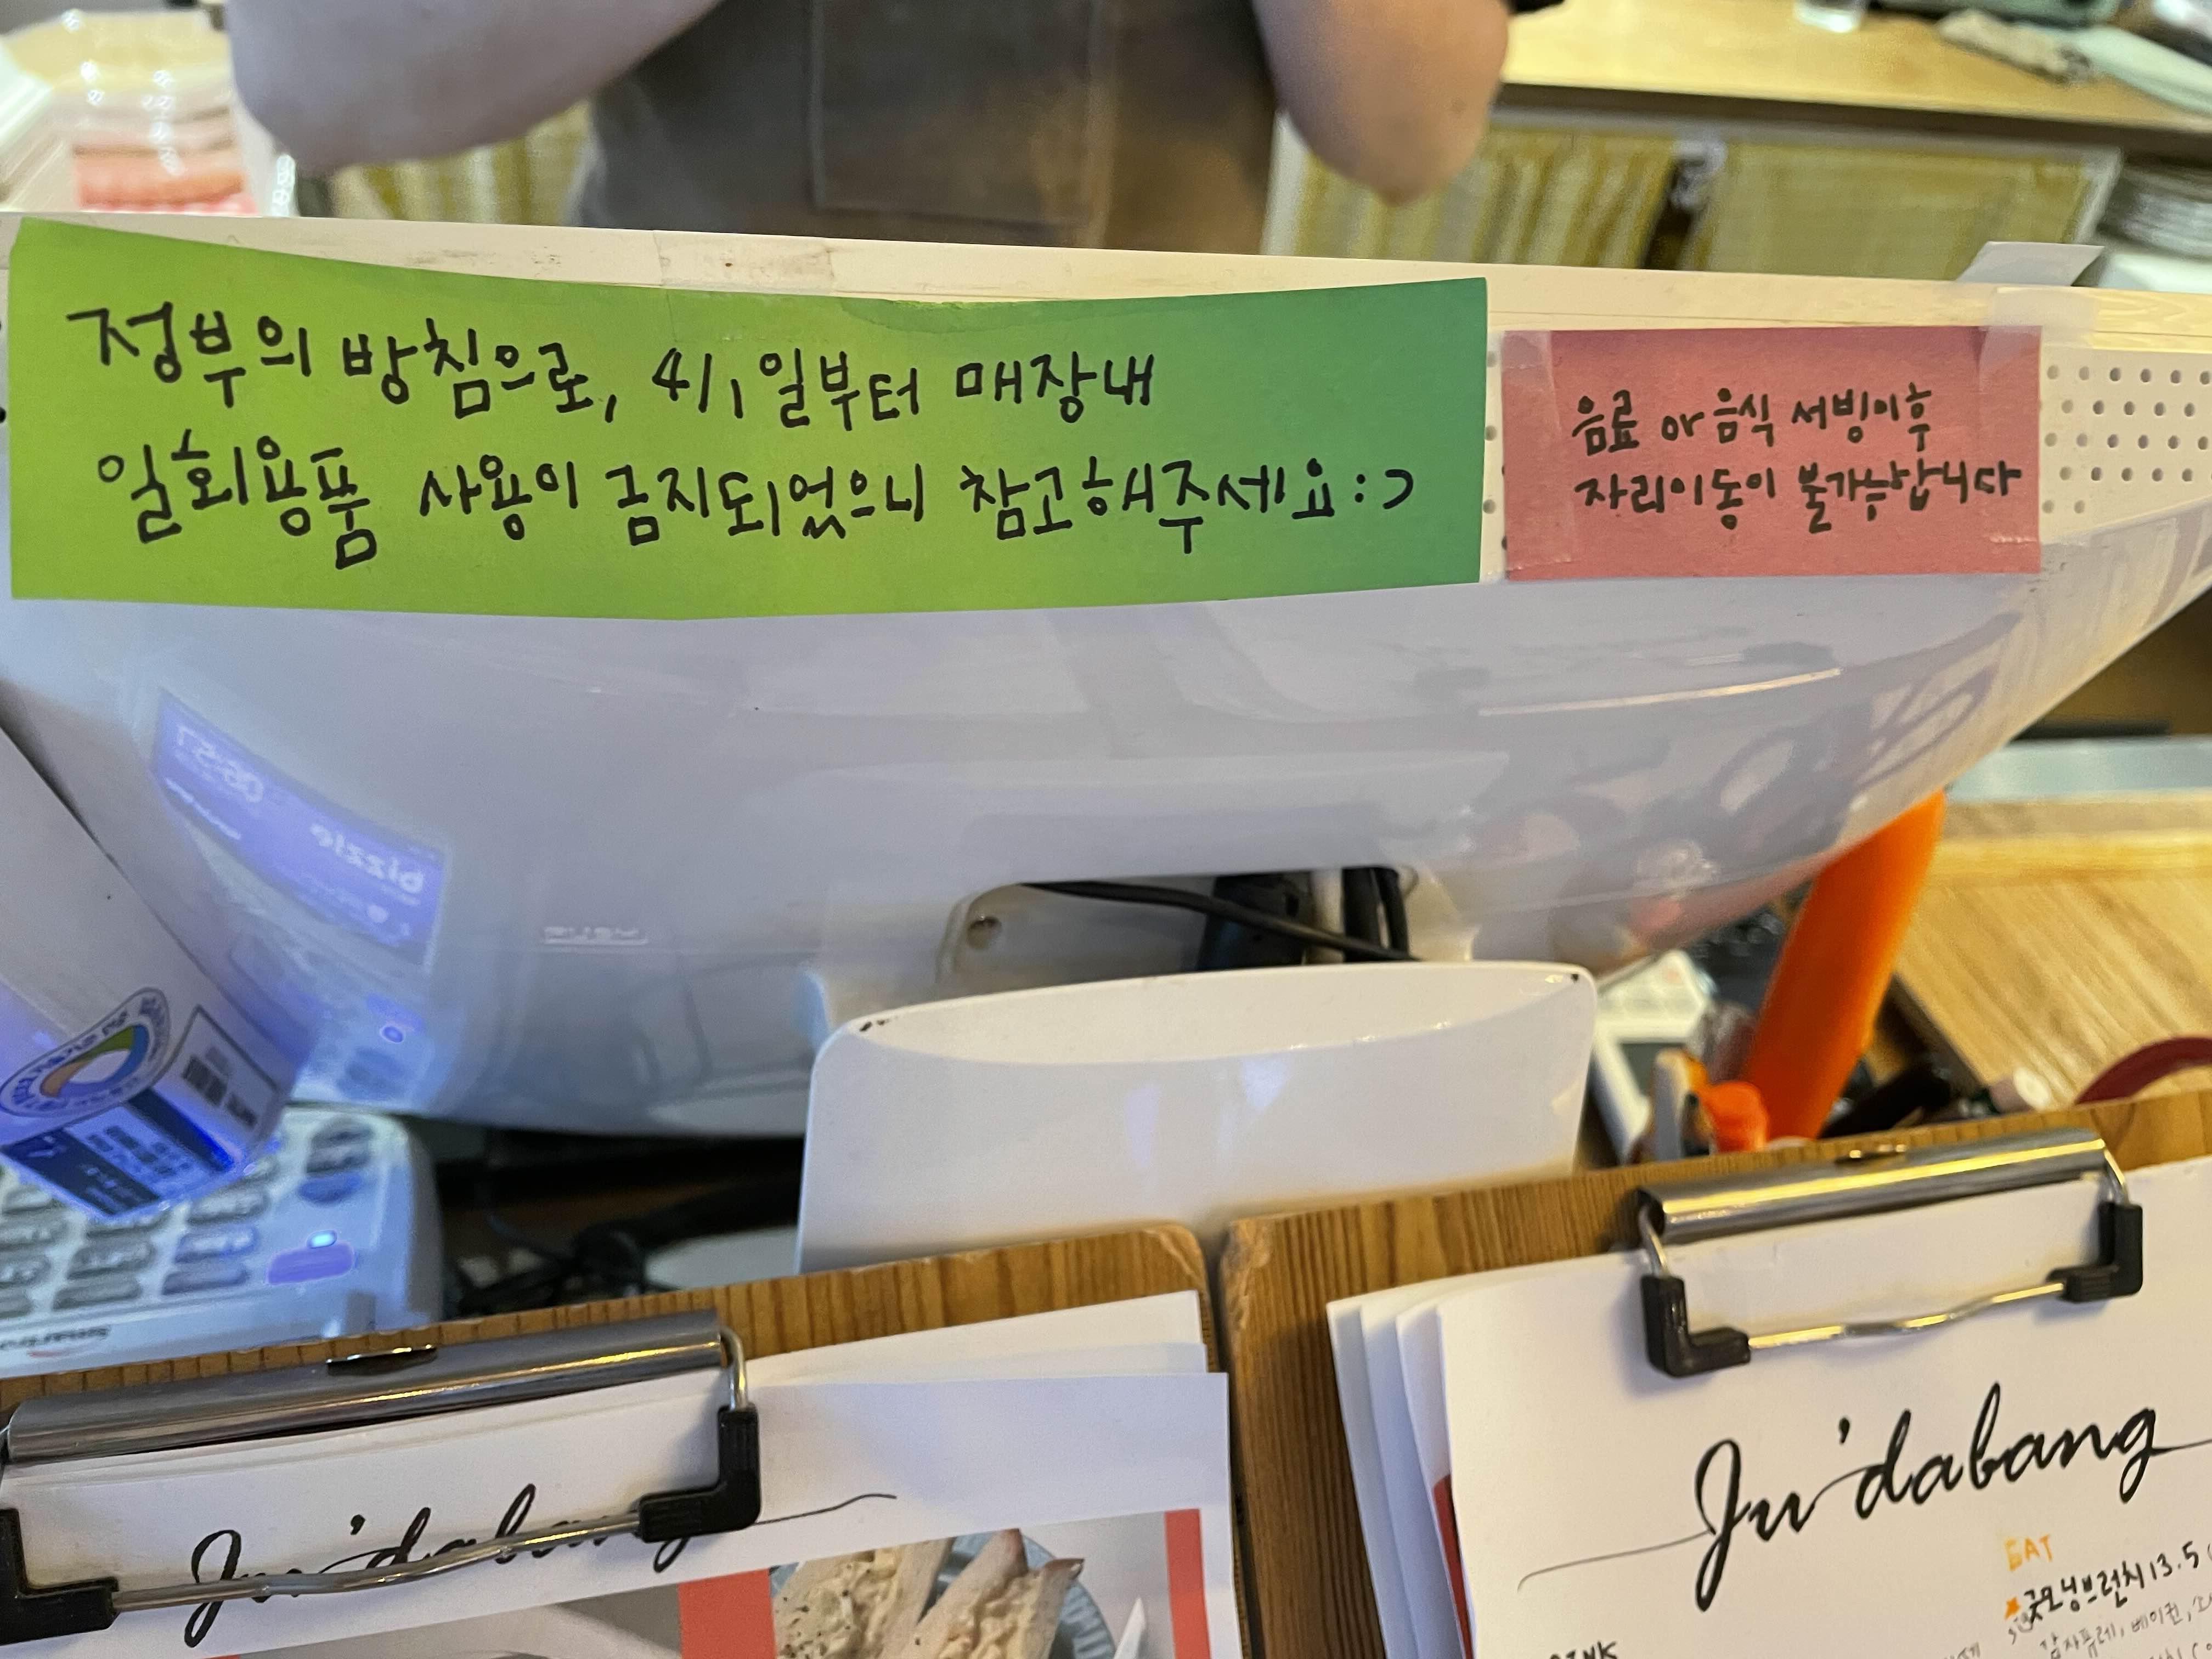 정부의 방침으로, 4/1일부터 매장내
일회용품 사용이 금지되었으니 참고해주세요:)
음료 or 음식 서빙이후
자리이동이 불가능합니다
PUSH
Ju'dabang
Ju'dabang
EAT
굿모닝브런치 13.5
감자퓨레, 베이컨,